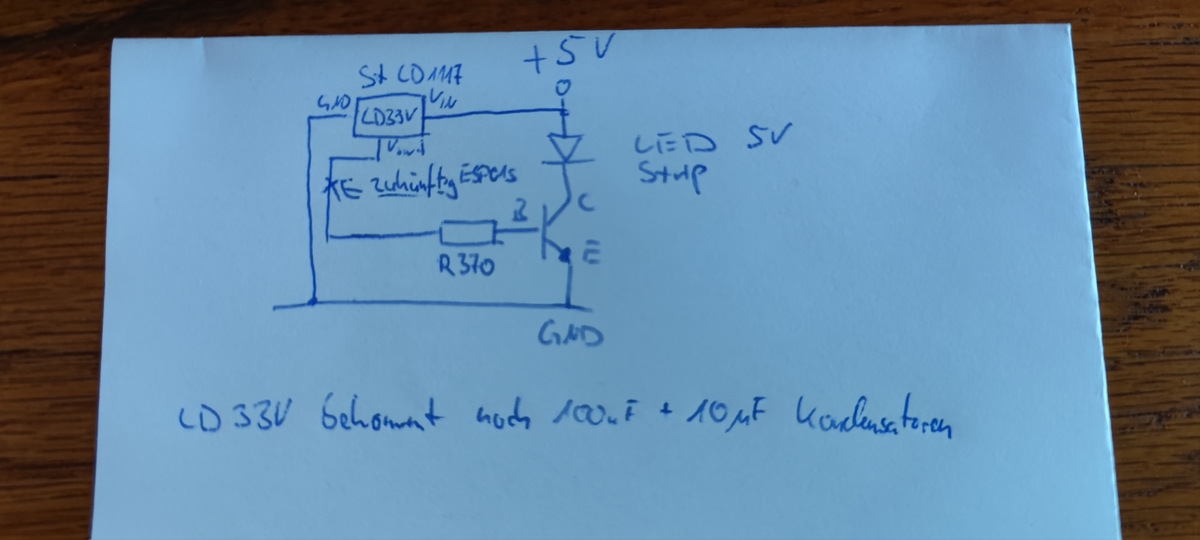 +5V
St LD1117
GND
VIN
LD33V
Vout
LED 5V
Strip
zukünftig ESP01s
C
B
E
R370
GND
LD33V bekommt noch 100nF + 10µF Kondensatoren